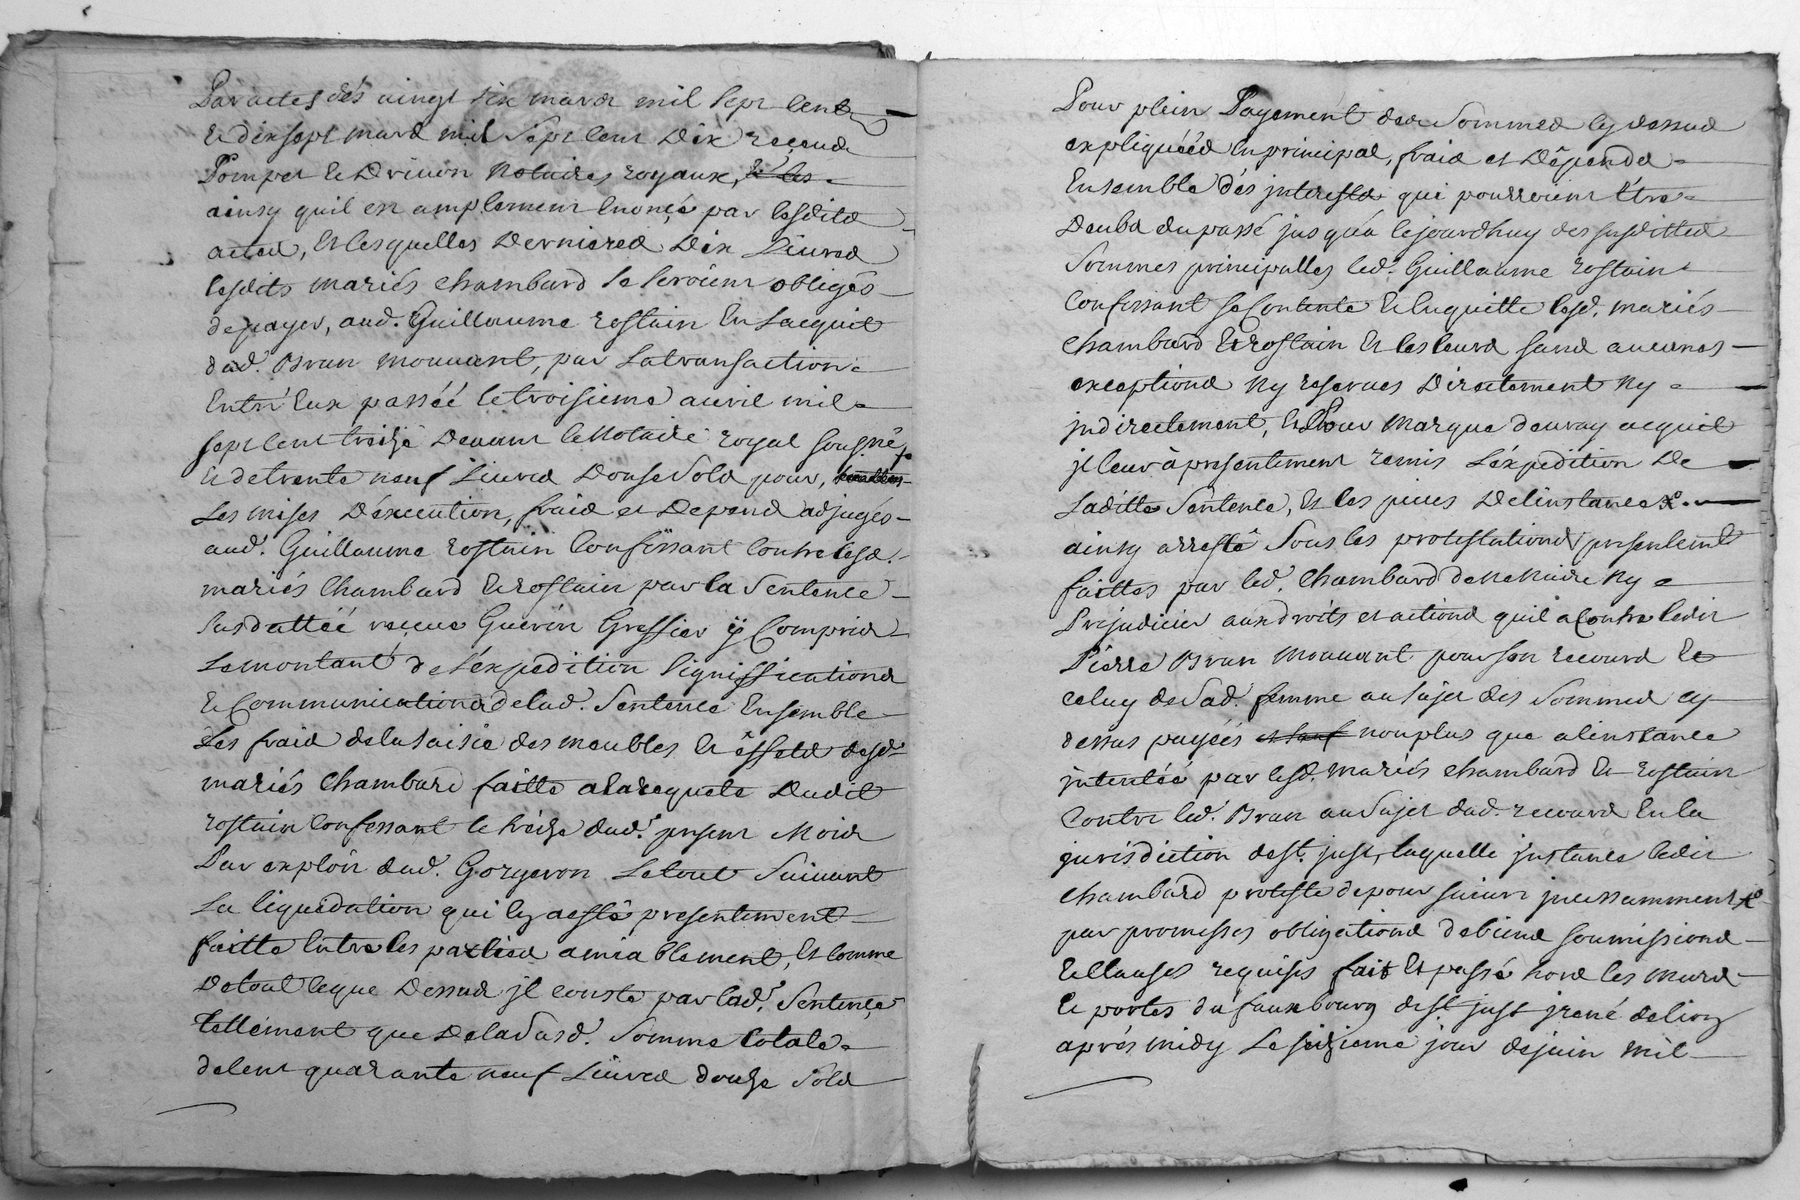 Par actes dés vingt six mars mil sept cents
et dix sept mars mil sept cent dix receus
Pompet et Drivon Notaires royaux, et les
ainsy quil est amplement enoncé par lesdits
actes, et lesquelles dernieres dix Livres
lesdits mariés chambard se seroient obligés
de payer, aud. Guillaume rostain en lacquit
dud. Brun mouvant, par la transaction
entr'eux passéé le troisieme avril mil
sept cent treize devant le Notaire royal sousné
et de trente neuf Livres douse sols pour,
Les mises d'éxecution, frais et depens adjugés
aud. Guillaume rostain Confessant contre lesd.
mariés Chambard et rostain par la Sentence
susdattéé receue Guerin Greffier ÿ Compris
Le montant de L'expedition significations
et Communications de lad. Sentence Ensemble
Les frais de la saisie des meubles et éffets desd.
mariés Chambard faitte a la requete dudit
rostain Confessant le treize dud. present Mois
Par exploit dud. Gorgeron Le tout Suivant
La liquidation qui en a esté presentement
faitte Entre les parties amiablement, et comme
de tout ce que dessus jl conste par lad. Sentence
tellement que de la susd. Somme totale
de cent quarante neuf Livres douze sols
Pour plein Payement des Sommes cy dessus
expliquéés en principal, frais et dépends
Ensemble dés jnterests qui pourroient étre
deubs du passé jusqu'a cejourdhuy des susdittes
Sommes principalles led. Guillaume rostain
Confessant se Contente et en quitte lesd. mariés
Chambard et rostain et les leurs sans aucunes
exceptions ny reserves directement ny
jndirectement, et Pour Marque de vray acquit
jl leur à presentement remis L'éxpedition de
Laditte Sentence, et les pieces de linstance
ainsy arresté Sous les protestations presentement
faittes par led. Chambard de ne Nuire ny
Prejudicier aux droits et actions quil a Contre ledit
Pierre Brun mouvant pour son recours et
celuy de Sad. femme au sujet des Sommes cy
dessus payéés et sauf non plus que a linstance
jntentéé par lesd. mariés Chambard et rostain
Contre led. Brun au Sujet dud. recours en la
jurisdiction de st. just, laquelle jnstance ledit
Chambard proteste de poursuivre jncessamment
par promesses obligations de biens soumissions
et clauses requises fait et passé hors les murs
et portes du fauxbourg de st. just jrené de lion
aprés midy Le seizieme jour de juin mil